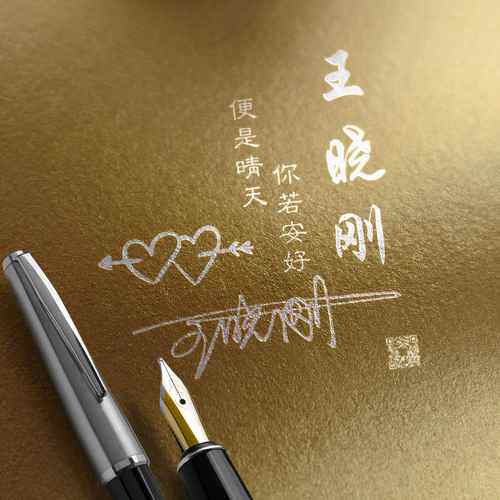 王晓刚
你若安好
便是晴天
王晓刚